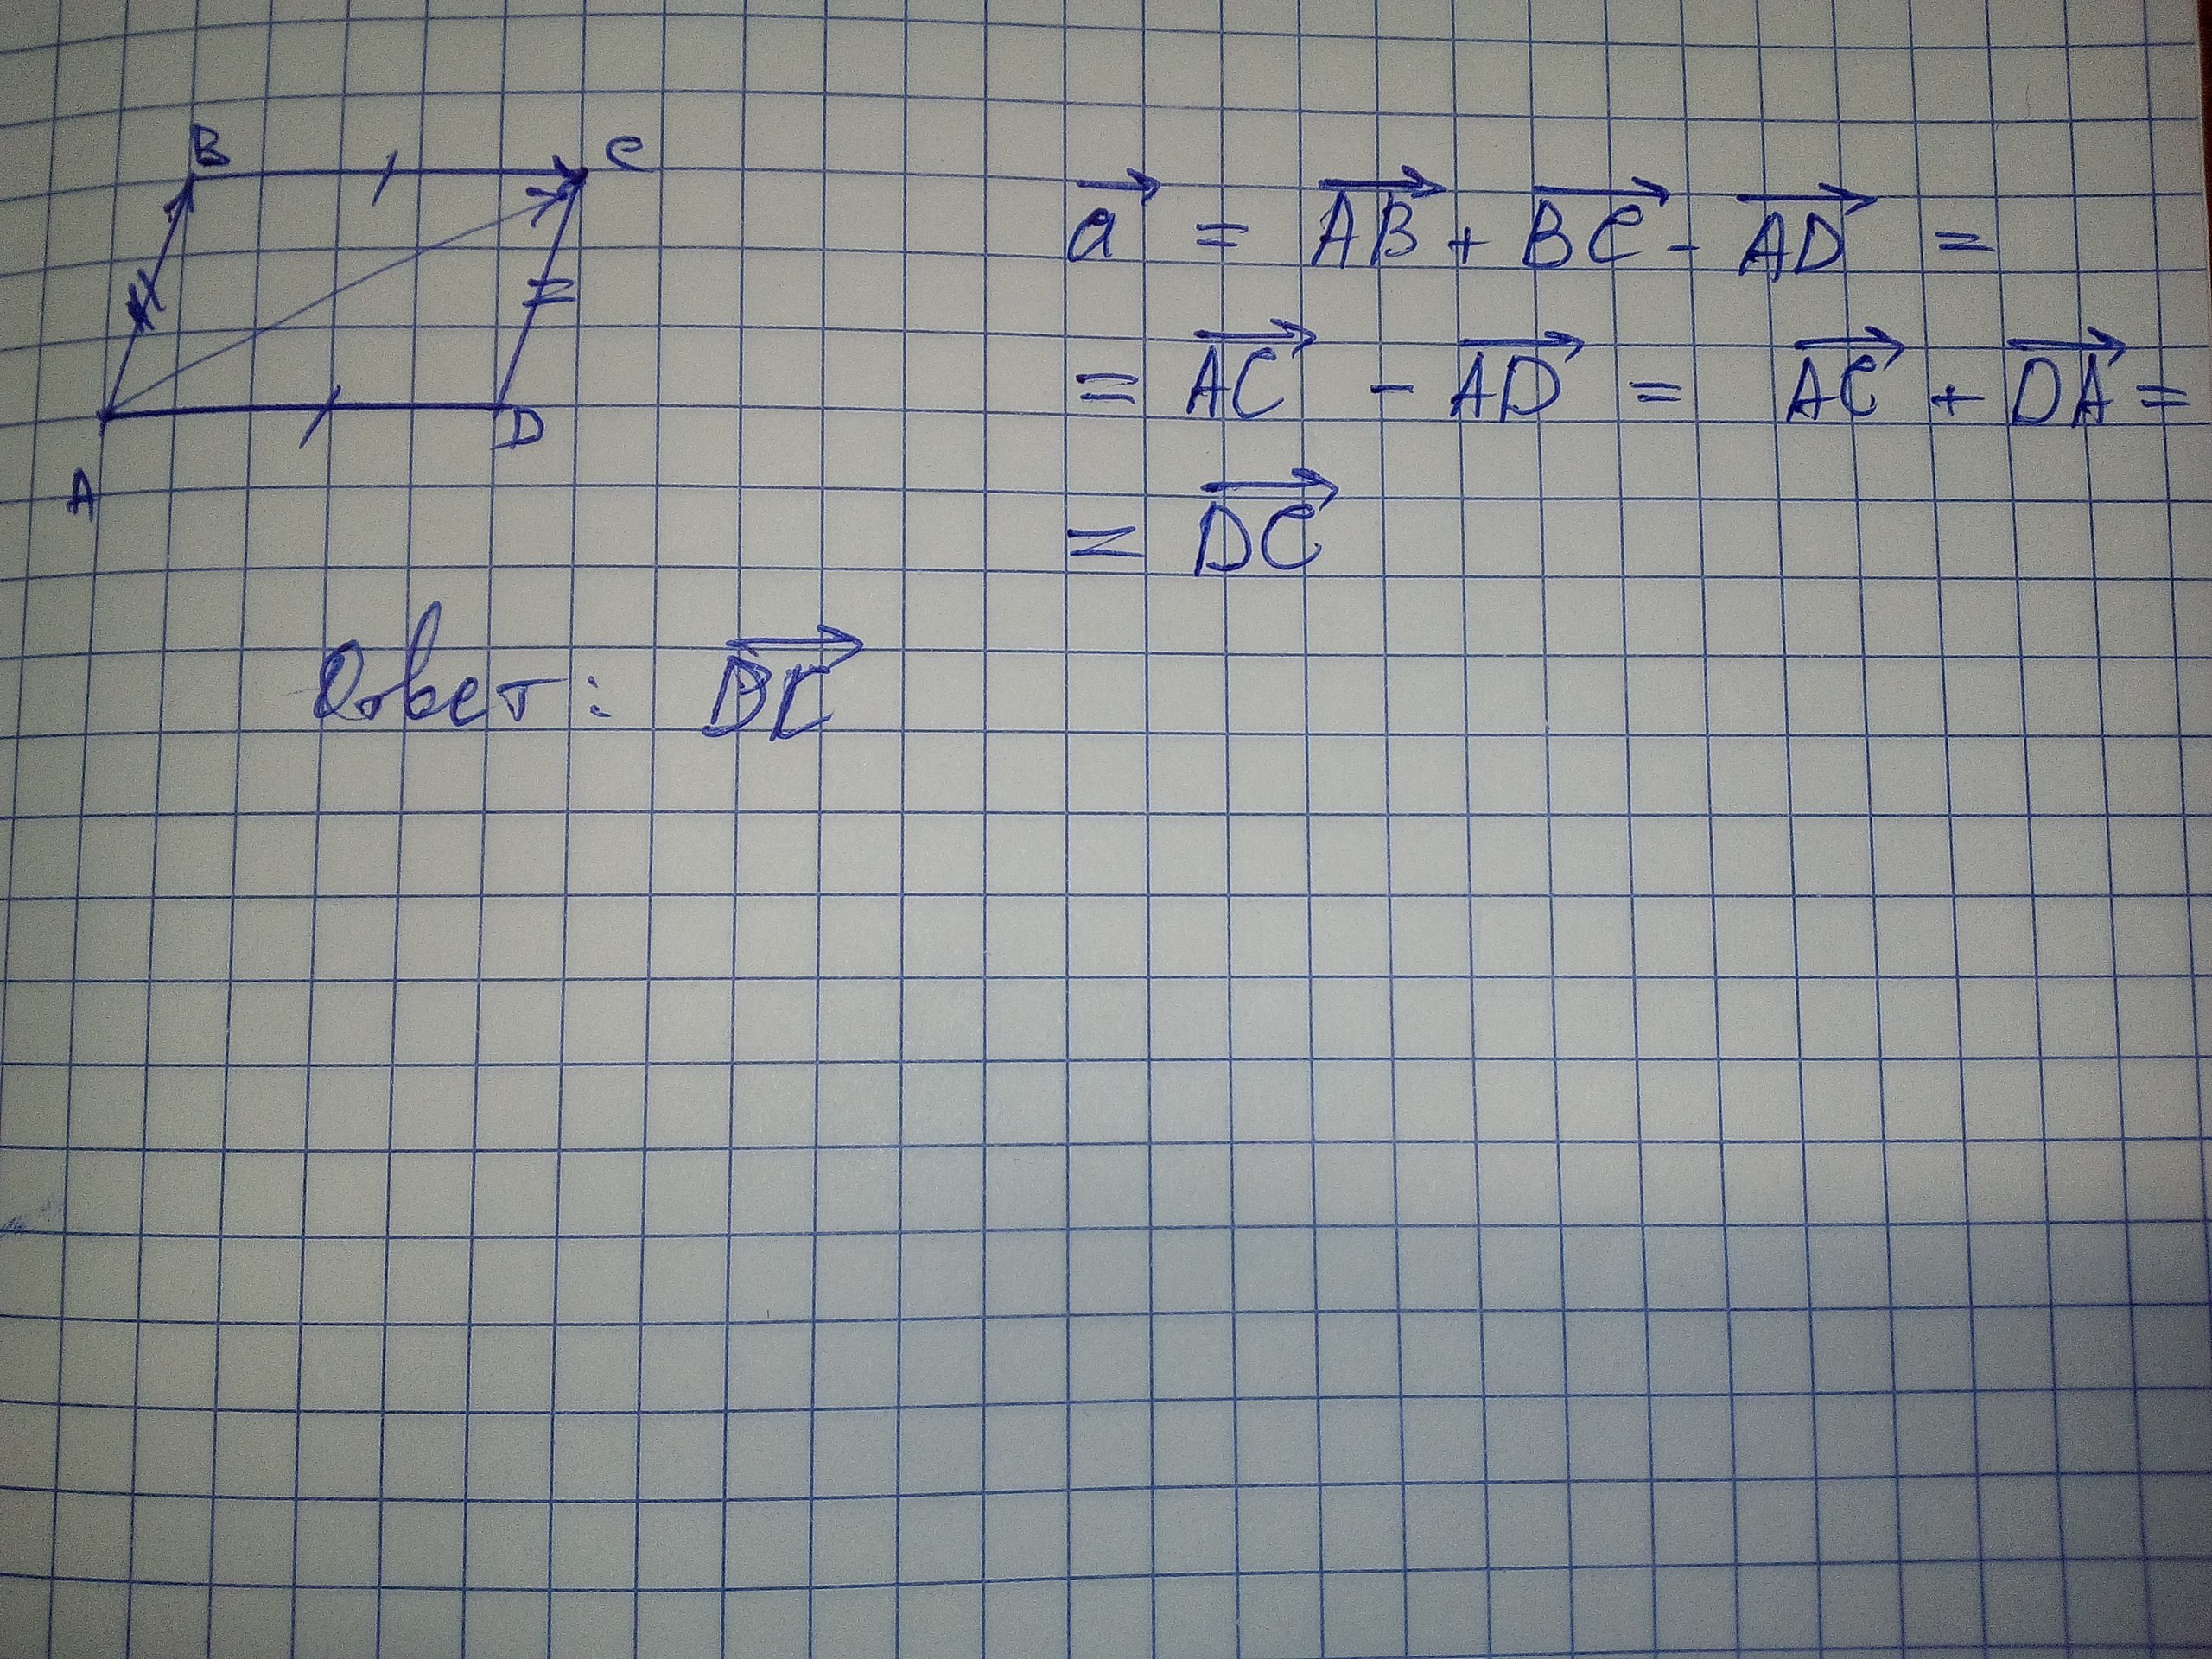 B C
A D
a⃗ = A͞B⃗ + B͞C⃗ - A͞D⃗ =
= A͞C⃗ - A͞D⃗ = A͞C⃗ + D͞A⃗ =
= D͞C⃗
Ответ: D͞C⃗